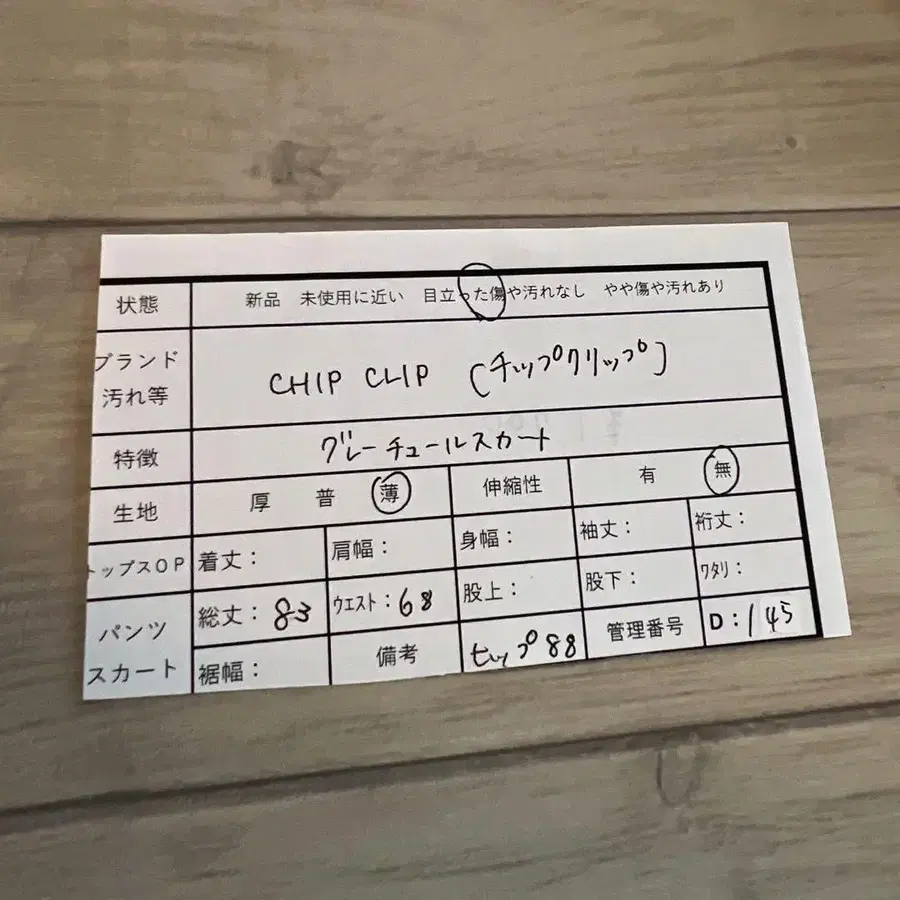 状態 新品 未使用に近い 目立った傷や汚れなし やや傷や汚れあり
ブランド
汚れ等 CHIP CLIP [チップクリップ]
特徴 グレーチュールスカート
生地 厚 普 薄 伸縮性 有 無
トップスOP 着丈: 肩幅: 身幅: 袖丈: 裄丈:
パンツ
スカート 総丈:83 ウエスト:68 股上: 股下: ワタリ:
裾幅: 備考 ヒップ88 管理番号 D:145